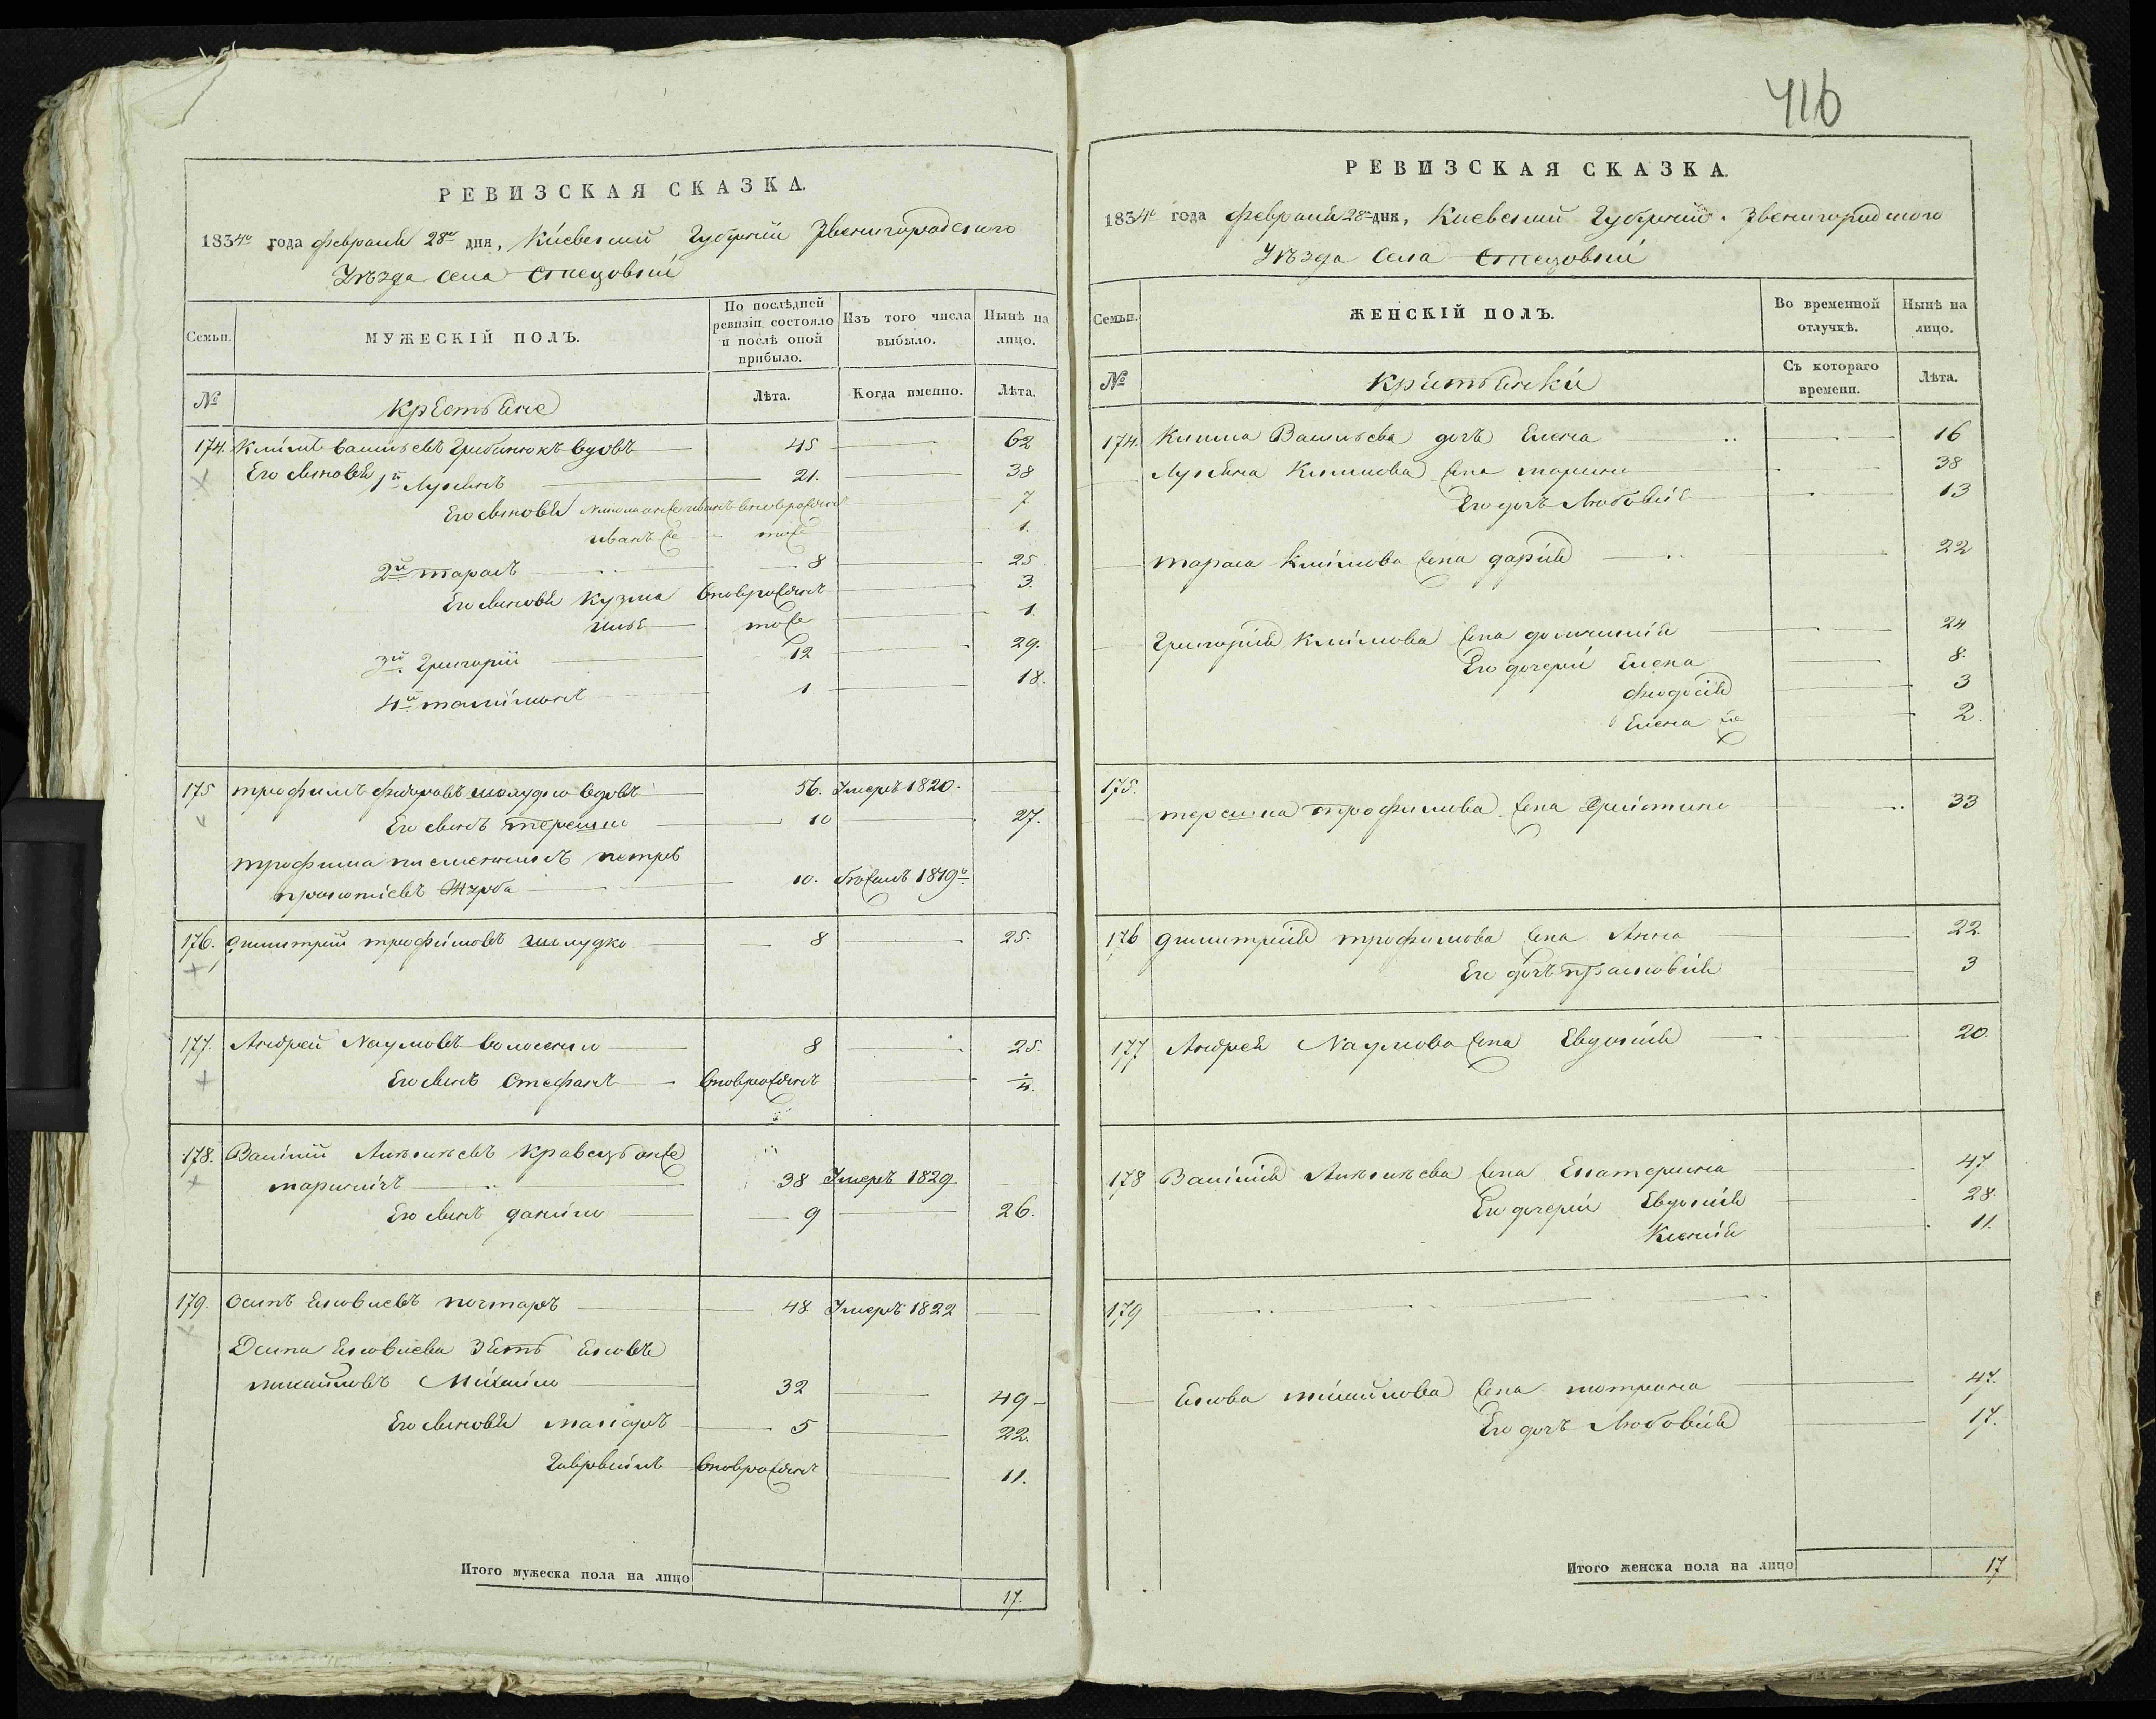 416
РЕВИЗСКАЯ СКАЗКА.
1834го года февраля 28го дня, Киевской Губернии Звенигородского
Уѣзда села Стецовки
Семьи.
МУЖЕСКІЙ ПОЛЪ.
По послѣдней ревизіи состояло и послѣ оной прибыло.
Изъ того числа выбыло.
Нынѣ на лицо.
№
крестьяне
Лѣта.
Когда именно.
Лѣта.
174. Климъ Васильевъ вдовъ 45 62
Его сыновья 1й Лукьянъ 21. 38
Его сыновья иванъ вновьрожденъ 7
иванъ же тоже 1.
2й тарасъ 8 25
Его сыновья Кузма вновьрожденъ 3.
илья тоже 1.
3й Григорий 12 29.
4й 1 18.
175 трофимъ федоровъ шолудко вдовъ 56. Умеръ 1820.
Его сынъ терешко 10 27.
трофима племянникъ петръ
10. бежалъ 1819го
176. димитрий трофимовъ шолудко 8 25.
177. Андрей Наумовъ 8 25.
Его сынъ Стефанъ вновьрожденъ 4.
178. Василий Кравецъ онже
38 Умеръ 1829
Его сынъ данило 9 26.
179. Осипъ Яковлевъ почтаръ 48 Умеръ 1822
Осипа Яковлева зять Яковъ
михайловъ Михайло 32 49
Его сыновья макаръ 5 22.
Гаврыилъ вновьрожденъ 11.
Итого мужеска пола на лицо 17.
РЕВИЗСКАЯ СКАЗКА.
1834го года февраля 28го дня, Киевской Губернии Звенигородского
Уѣзда села Стецовки
Семьи.
ЖЕНСКІЙ ПОЛЪ.
Во временной отлучкѣ.
Нынѣ на лицо.
№
крестьянки
Съ котораго времени.
Лѣта.
174. Клима Васильева дочь Елена 16
Лукьяна Климова жена марина 38
Его дочь Любовия 13
тараса Климова жена дария 22
Григория Климова жена 24
Его дочери Елена 8.
феодосия 3
Елена же 2.
175. терешка трофимова жена Христина 33
176 димитрия трофимова жена Анна 22
Его дочь прасковия 3
177 Андрея Наумова жена Евдокия 20.
178 Василия жена Екатерина 47
Его дочери Евдокия 28.
Ксения 11.
179
Якова михайлова жена 47.
Его дочь Любовия 17.
Итого женска пола на лицо 17